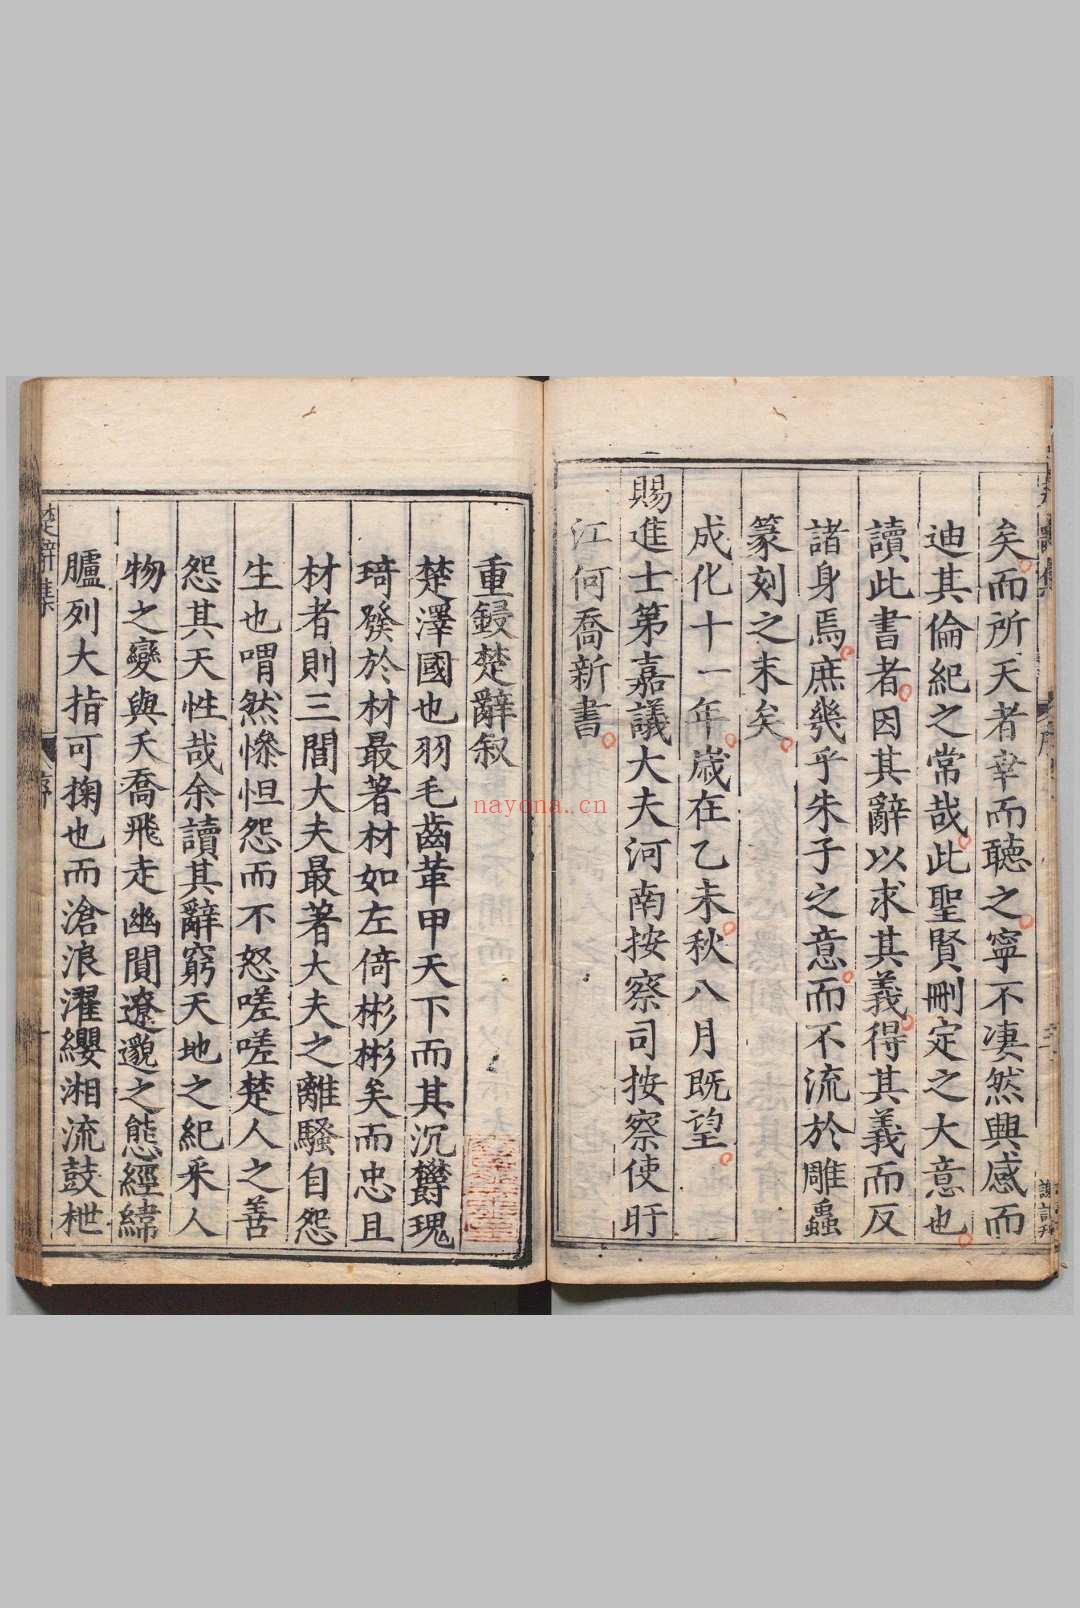 矣而所天者幸而聽之寧不凄然興感而
迪其倫紀之常哉此聖賢刪定之大意也
讀此書者因其辭以求其義得其義而反
諸身焉庶幾乎朱子之意而不流於雕蟲
篆刻之末矣
成化十一年歳在乙未秋八月既望
賜進士第嘉議大夫河南按察司按察使盱
江何喬新書
重鋟楚辭叙
楚澤國也羽毛齒革甲天下而其沉鬱瑰
琦發於材最著材如左倚彬彬矣而忠且
材者則三閭大夫最著大夫之離騷自怨
生也喟然慘怛怨而不怒嗟嗟楚人之善
怨其天性哉余讀其辭窮天地之紀釆人
物之變與夭喬飛走幽閴遼邈之態經緯
臚列大指可掬也而滄浪濯纓湘流鼓枻
楚辭集
序
nayona.cn